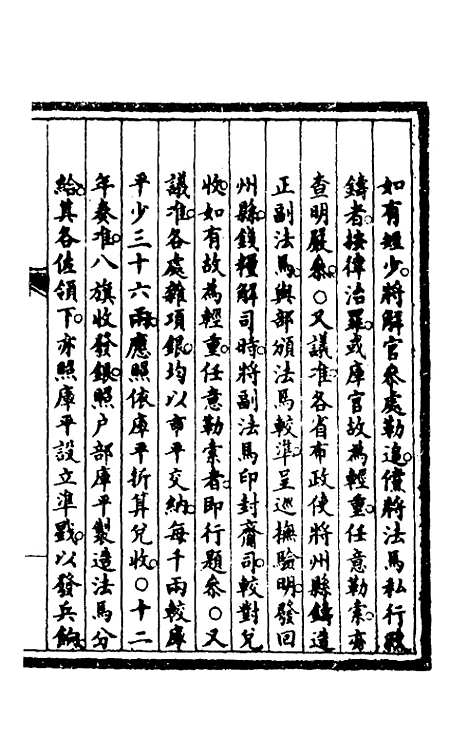 如有短少。將解官參處勒追償將法馬私行改
鑄者。按律治罪。或庫官故為輕重。任意勒索。亦
查明嚴參。○又議准。各省布政使將州縣鑄造
正副法馬。與部頒法馬較準。呈巡撫驗明。發回
州縣。錢糧解司時。將副法馬印封齎司。較對兌
收。如有故為輕重。任意勒索者。即行題參。○又
議准。各處雜項銀。均以市平交納。每千兩較庫
平少三十六兩。應照依庫平折算兌收。○十二
年奏准。八旗收發銀。照戶部庫平製造法馬。分
給其各佐領下。亦照庫平設立準戥。以發兵餉。